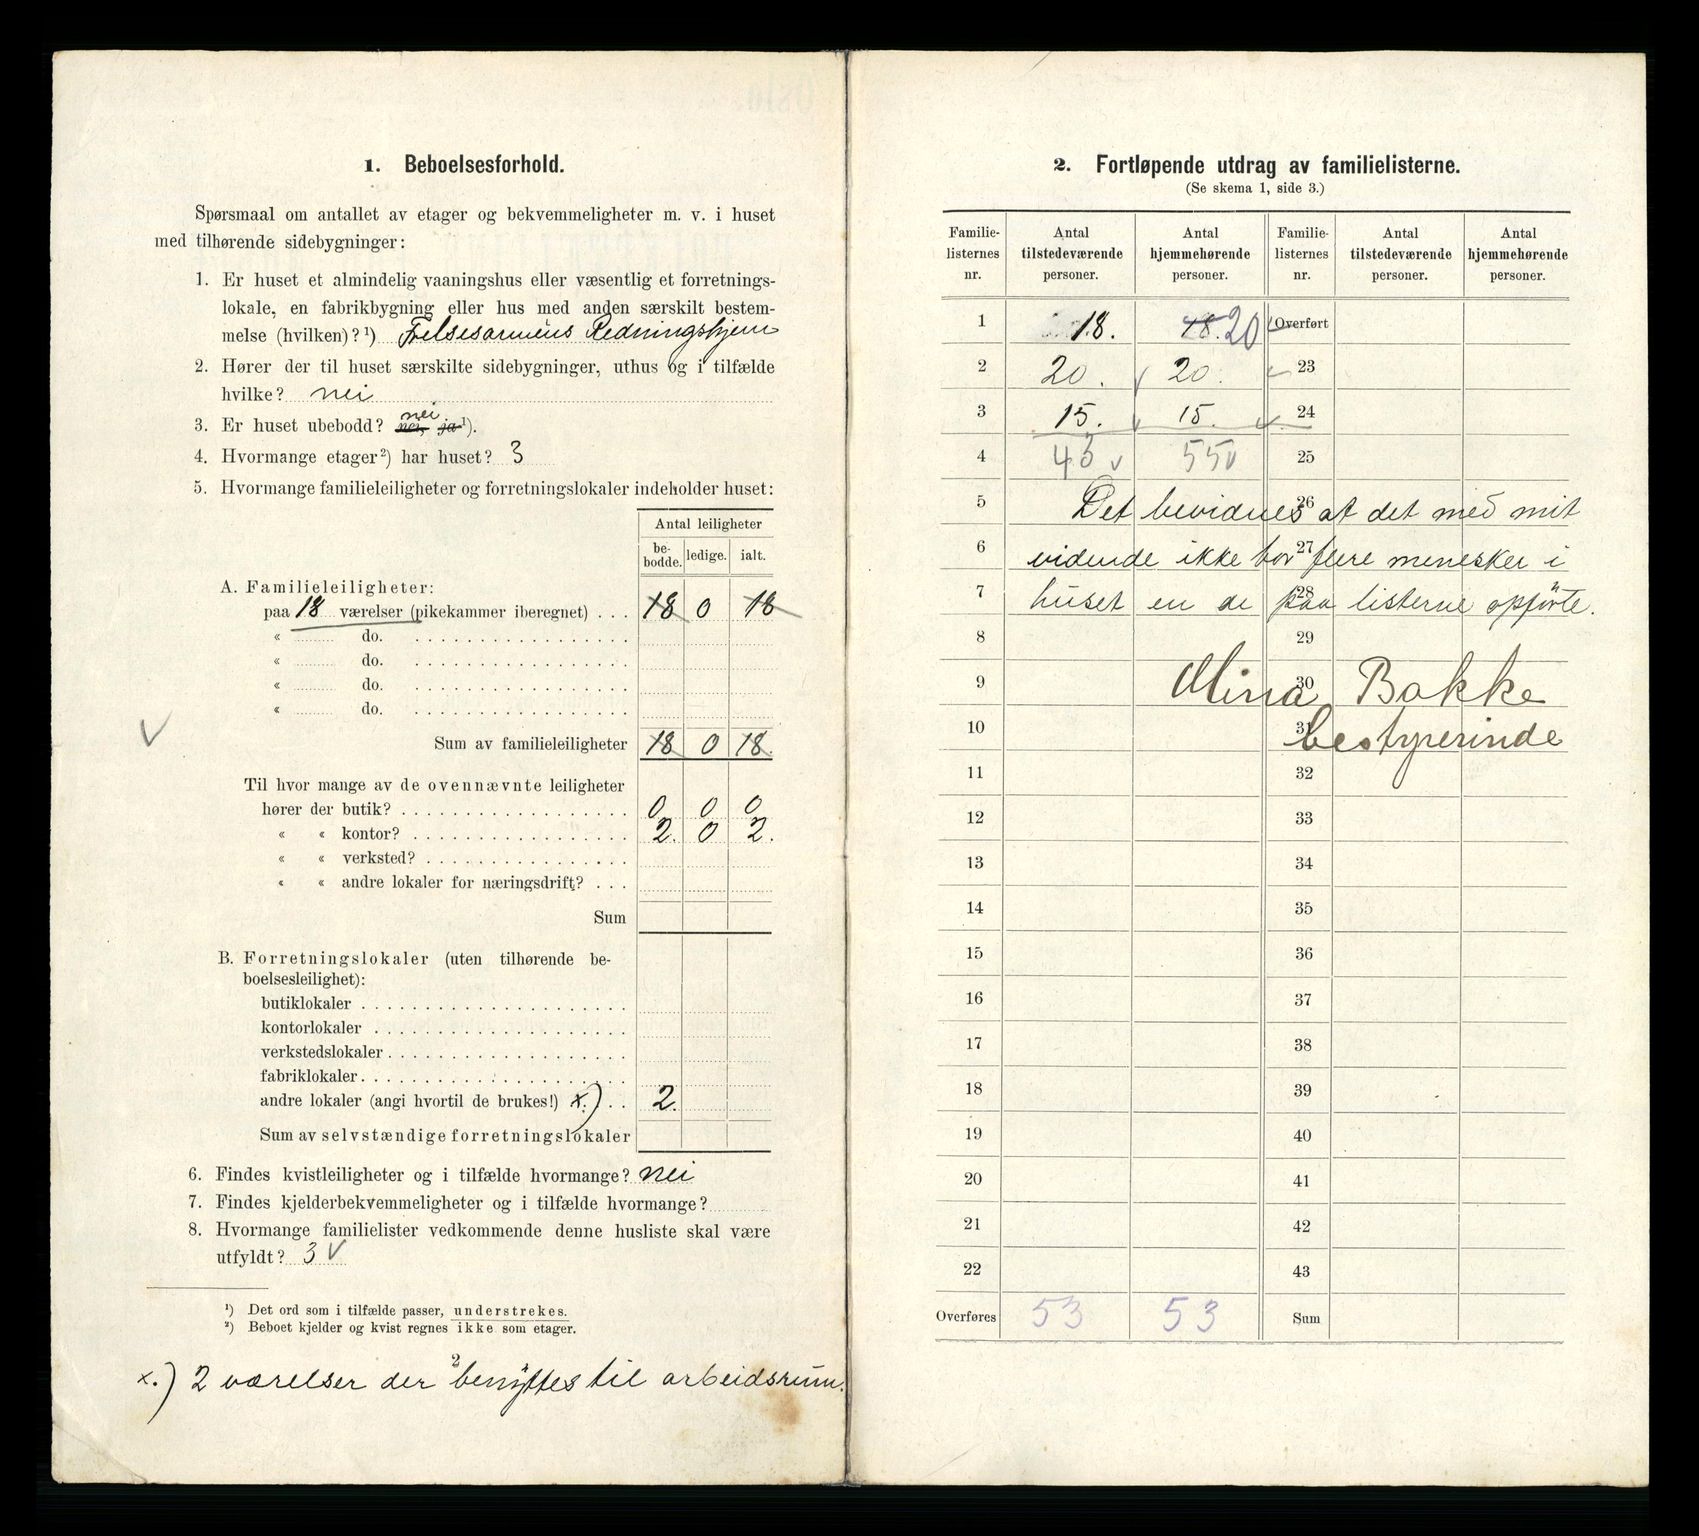 1. Beboelsesforhold.
Spørsmaal om antallet av etager og bekvemmeligheter m. v. i huset
med tilhørende sidebygninger:
1. Er huset et almindelig vaaningshus eller væsentlig et forretnings-
lokale, en fabrikbygning eller hus med anden særskilt bestem-
melse (hvilken)?¹) Frelsesarmeens Redningshjem
2. Hører der til huset særskilte sidebygninger, uthus og i tilfælde
hvilke? nei
3. Er huset ubebodd? nei, ja¹). nei
4. Hvormange etager²) har huset? 3
5. Hvormange familieleiligheter og forretningslokaler indeholder huset:
Antal leiligheter
be-bodde. ledige. ialt.
A. Familieleiligheter:
paa 18 værelser (pikekammer iberegnet) . . . 18 0 18
« do.
« do.
« do.
« do.
Sum av familieleiligheter 18 0 18.
Til hvor mange av de ovennævnte leiligheter
hører der butik? 0 0 0
« « kontor? 2. 0 2.
« « verksted?
« « andre lokaler for næringsdrift?
Sum
B. Forretningslokaler (uten tilhørende be-
boelsesleilighet):
butiklokaler
kontorlokaler
verkstedslokaler
fabriklokaler
andre lokaler (angi hvortil de brukes!) x.) . . 2.
Sum av selvstændige forretningslokaler
6. Findes kvistleiligheter og i tilfælde hvormange? nei
7. Findes kjelderbekvemmeligheter og i tilfælde hvormange?
8. Hvormange familielister vedkommende denne husliste skal være
utfyldt? 3 v
¹) Det ord som i tilfælde passer, understrekes.
²) Beboet kjelder og kvist regnes ikke som etager.
x.) 2 værelser der benyttes til arbeidsrum.
2. Fortløpende utdrag av familielisterne.
(Se skema 1, side 3.)
Familie-listernes nr. Antal tilstedeværende personer. Antal hjemmehørende personer. Familie-listernes nr. Antal tilstedeværende personer. Antal hjemmehørende personer.
1 18. 18. 20 Overført
2 20. 20. 23
3 15. 15. 24
4 55 25
5 26
Det bevidnes at det med mit
6 27
vidende ikke bor flere menesker i
7 28
huset en de paa listerne opførte.
8 29
9 30
Mina Bakke
10 31
bestyrerinde
11 32
12 33
13 34
14 35
15 36
16 37
17 38
18 39
19 40
20 41
21 42
22 43
Overføres 53 53 Sum